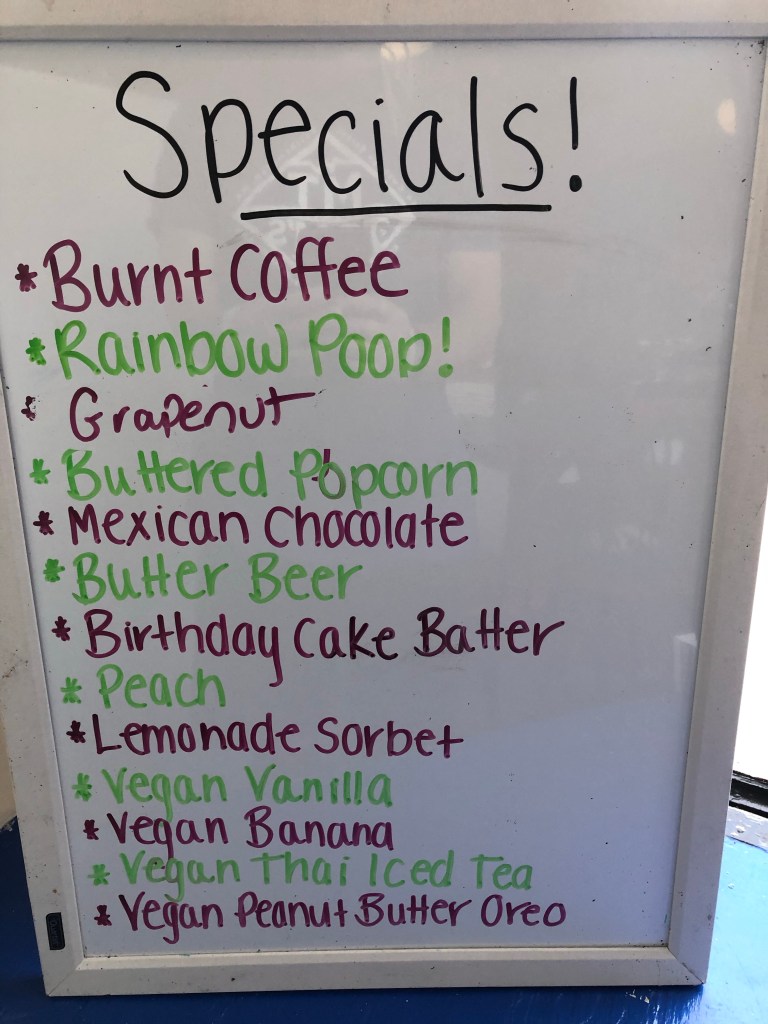 Specials!
* Burnt Coffee
* Rainbow Poop!
* Grapenut
* Buttered Popcorn
* Mexican Chocolate
* Butter Beer
* Birthday Cake Batter
* Peach
* Lemonade Sorbet
* Vegan Vanilla
* Vegan Banana
* Vegan Thai Iced Tea
* Vegan Peanut Butter Oreo